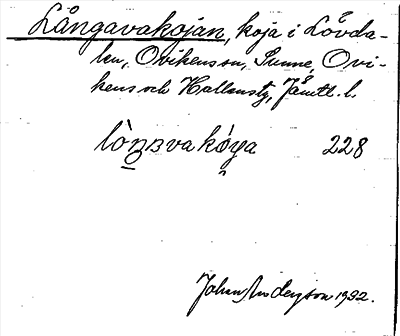 Långavakojan, koja i Lövda-
len, Ovikens sn, Sunne, Ovi-
kens och Hallens tg, Jämtl. l.
lòṉᴈva kóya 228
Johan Anderson 1932.